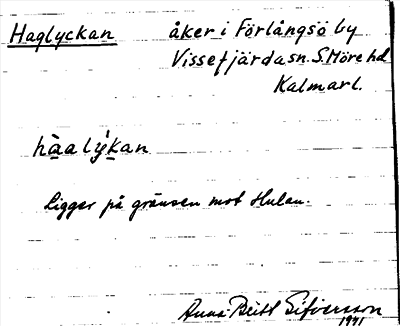 Haglyckan åker i Förlångsö by
Vissefjärda sn. S. Möre hd
Kalmar l.
hàalýkan
Ligger på gränsen mot Hulan.
Anna-Britt Sifversson
1941